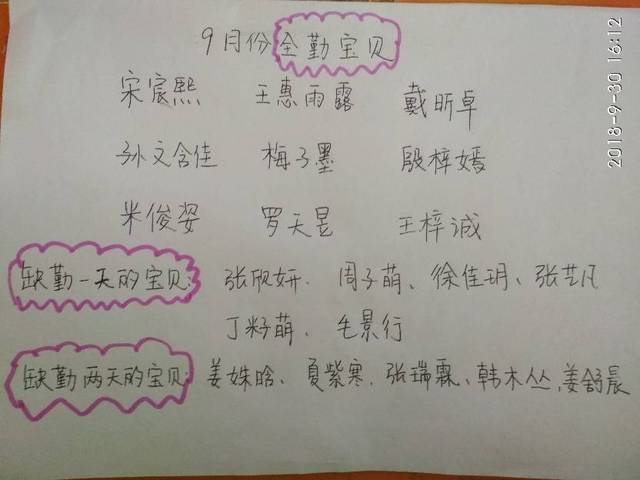 9月份全勤宝贝
宋宸熙 王惠雨露 戴昕卓
孙文含佳 梅子墨 殷梓嫣
米俊姿 罗天昱 王梓诚
缺勤一天的宝贝: 张欣妍、周子萌、徐佳玥、张艺凡
丁籽萌、毛景行
缺勤两天的宝贝: 姜姝晗、夏紫寒、张瑞霖、韩木丛、姜舒晨
2018-9-30 16:12